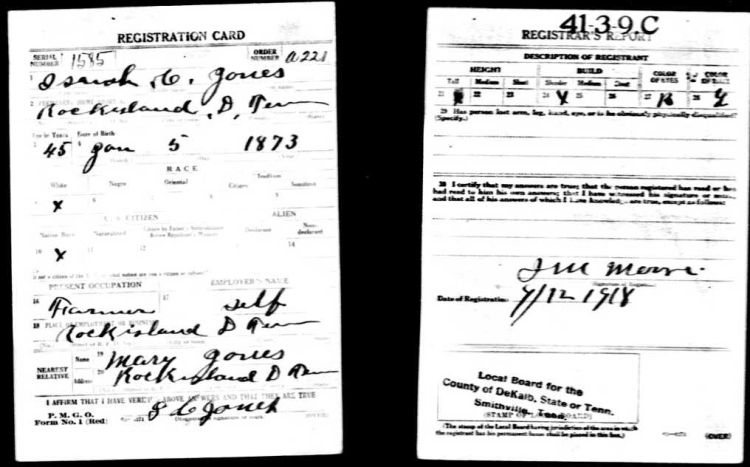 REGISTRATION CARD
SERIAL NUMBER 1585 ORDER NUMBER A221
1 Isaiah C. Jones
2 PERMANENT HOME
Rock island, D, Tenn
Age in Years Date of Birth
3 45 4 Jan 5 1873
RACE
White Negro Oriental Indian
Citizen
5 X 6
U. S. CITIZEN ALIEN
Native Born Naturalized Citizen by Father's Naturalization Before Registrant's Majority Declarant Non-declarant
10 X 11 12 14
PRESENT OCCUPATION EMPLOYER'S NAME
16 Farmer 17 self
18 PLACE OF EMPLOYMENT OR BUSINESS
Rock island D Tenn
NEAREST RELATIVE Name 19 Mary Jones
Address 20 Rock island D Tenn
I AFFIRM THAT I HAVE VERIFIED ABOVE ANSWERS AND THAT THEY ARE TRUE
P. M. G. O.
Form No. 1 (Red) I C Jones
41-3-9.C
REGISTRAR'S REPORT
DESCRIPTION OF REGISTRANT
HEIGHT BUILD COLOR OF EYES COLOR OF HAIR
Tall Medium Short Slender Medium Stout
21 22 23 24 X 25 26 27 28
29 Has person lost arm, leg, hand, eye, or is he obviously physically disqualified?
(Specify.)
30 I certify that my answers are true; that the person registered has read or has
had read to him his own answers; that I have witnessed his signature or mark,
and that all of his answers of which I have knowledge are true, except as follows:
Date of Registration 9/12 1918
Local Board for the
County of DeKalb, State or Tenn.
Smithville, Tenn.
(STAMP OF LOCAL BOARD)
(The stamp of the Local Board having jurisdiction of the area in which
the registrant has his permanent home shall be placed in this box.)
(OVER)